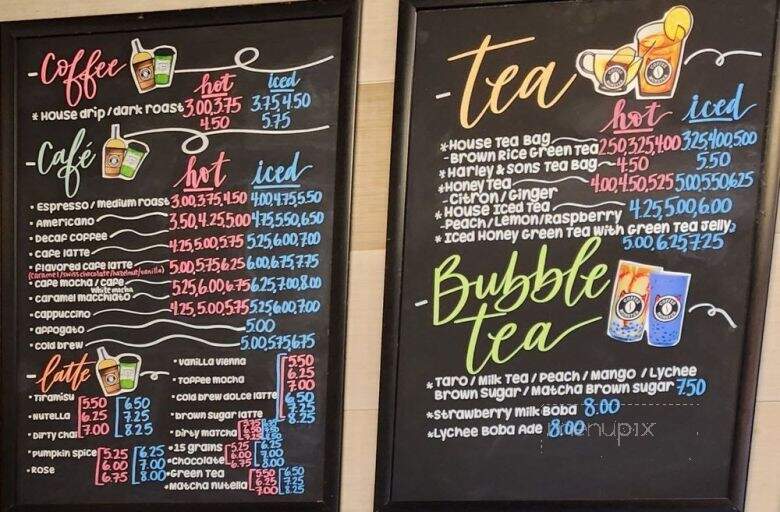 Coffee
hot iced
* House drip / dark roast 3.00,3.75 3.75,4.50
4.50 5.75
Café
hot iced
• Espresso / medium roast 3.00,3.75,4.50 4.00,4.75,5.50
• Americano 3.50,4.25,5.00 4.75,5.50,6.50
• Decaf coffee
• Cafe latte 4.25,5.00,5.75 5.25,6.00,7.00
• Flavored cafe latte 5.00,5.75,6.25 6.00,6.75,7.75
(caramel/swisschocolate/hazelnut/vanilla)
• cafe mocha / cafe white mocha 5.25,6.00,6.75 6.25,7.00,8.00
• caramel macchiato
• cappuccino 4.25,5.00,5.75 5.25,6.00,7.00
• affogato 5.00
• cold brew 5.00,5.75,6.75
latte
• Tiramisu
• Nutella
• Dirty chai
5.50 6.50
6.25 7.25
7.00 8.25
• Pumpkin spice
• Rose
5.25 6.25
6.00 7.00
6.75 8.00
• vanilla vienna
• Toffee mocha
• cold brew dolce latte
• brown sugar latte
5.50
6.25
7.00
6.50
7.25
8.25
• Dirty matcha
• 15 grams
• chocolate
5.25 6.25
6.00 7.00
6.75 8.00
• Green Tea
• Matcha nutella
5.50 6.50
6.25 7.25
7.00 8.25
Tea
hot iced
* House Tea Bag 2.50,3.25,4.00 3.25,4.00,5.00
- Brown Rice Green Tea
* Harley & Sons Tea Bag 4.50 5.50
* Honey Tea 4.00,4.50,5.25 5.00,5.50,6.25
- Citron / Ginger
* House Iced Tea 4.25,5.00,6.00
- Peach/Lemon/Raspberry
* Iced Honey Green Tea with Green Tea Jelly
5.00,6.25,7.25
Bubble
tea
* Taro / Milk Tea / Peach / Mango / Lychee
Brown Sugar / Matcha Brown sugar 7.50
* Strawberry Milk Boba 8.00
* Lychee Boba Ade 8.00
menupix